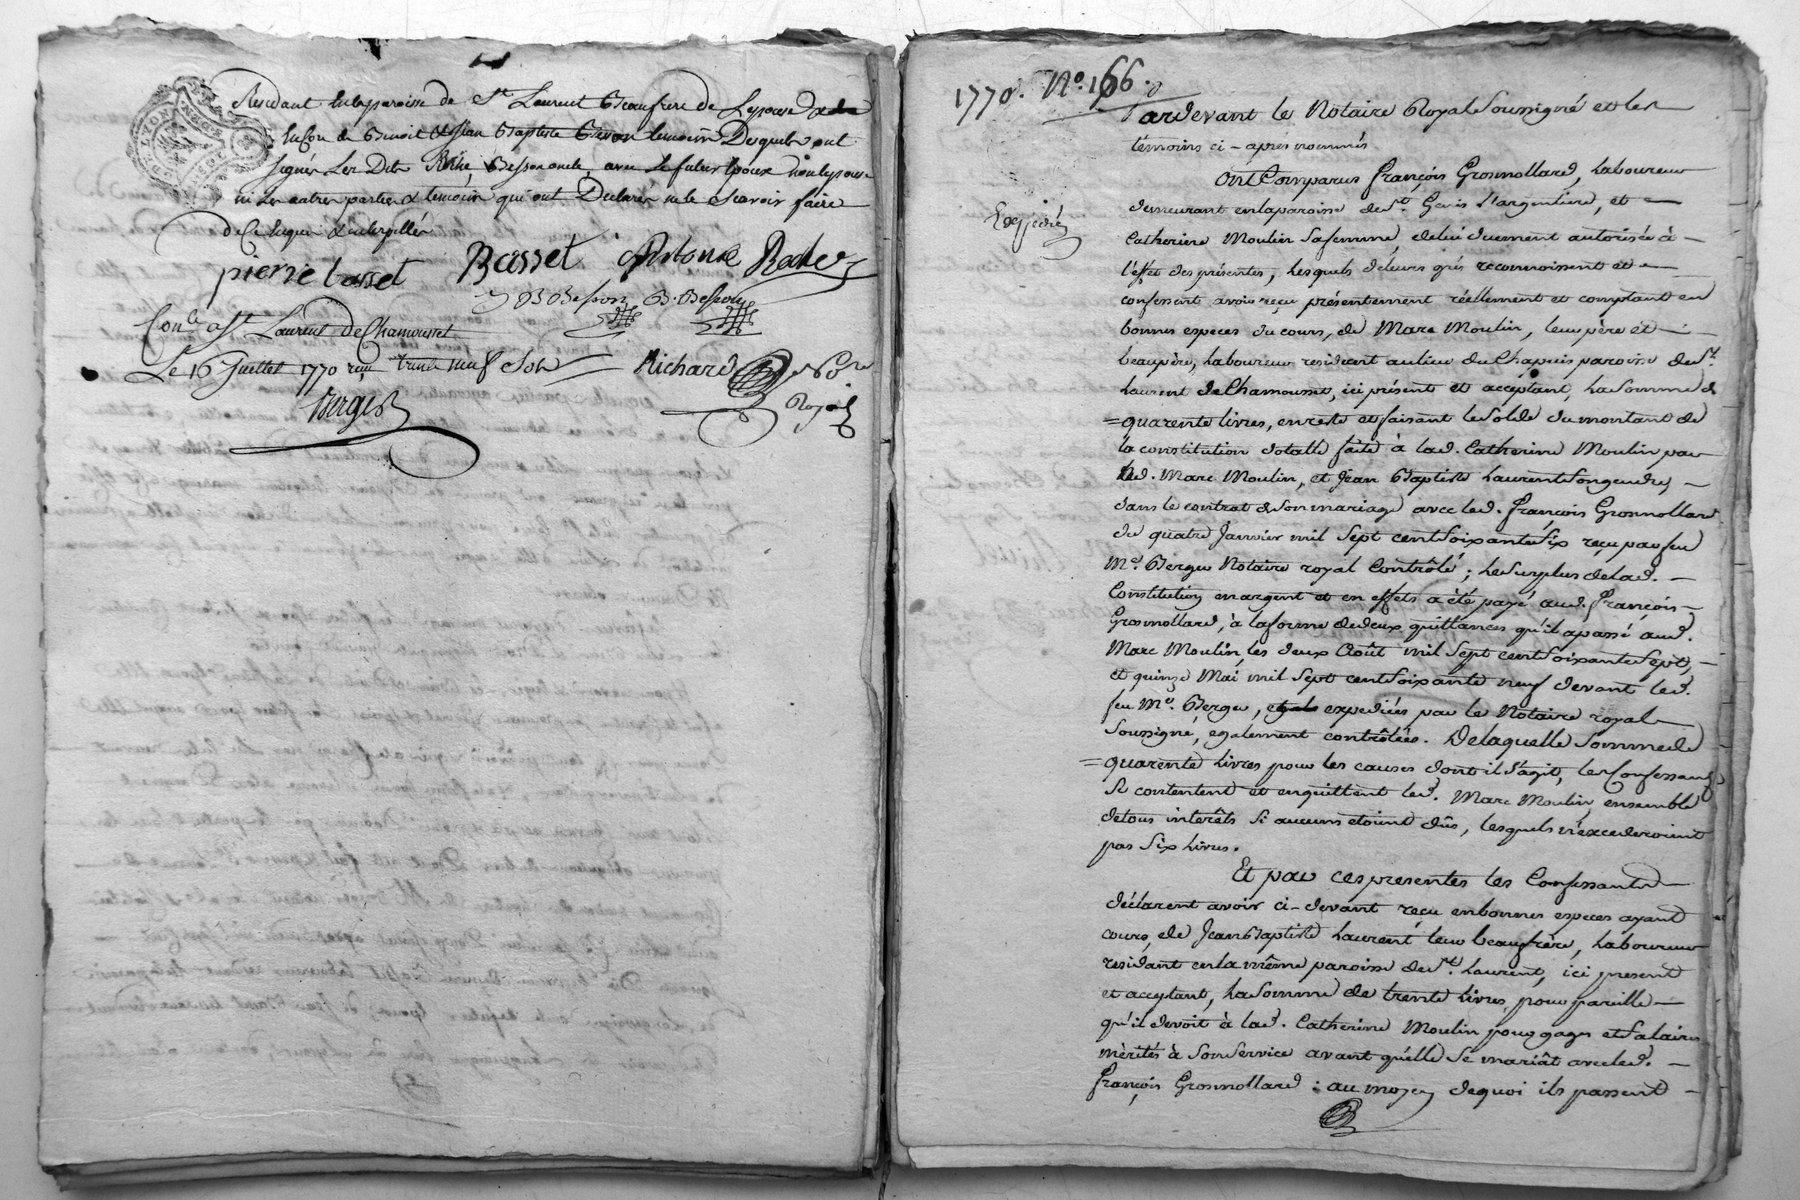 Residant en la paroisse de St. Laurent Beaufrere de Lepouse &
Benoit & Jean Baptiste temoins Desquels ont
signés Les Dits Besson avec Le futur Epoux non Lepouse
ni Les autres parties & temoins qui ont Declarés ne le Scavoir faire
De Ce Enquis & interpellés
pierre basset Basset Antoine Roche
JB Besson B. Besson
Conlé a St. Laurent De Chamousset
Le 16 Juillet 1770 reçu trente neuf sols
Richard
Royal
Berger
1770. No. 166.
Pardevant le Notaire Royal Soussigné et les
témoins ci-apres nommés
Ont Comparus François Grosmollard, Laboureur
demeurant en la paroisse de St. Genis L'argentiere, et
Catherine Moulin sa femme de lui duement autorisée à
l'effet des présentes, Lesquels de leurs grés reconnoissent et
confessent avoir reçu présentement réellement et comptant en
bonnes especes du cours, de Marc Moulin, leur père et
beaupère, Laboureur residant au lieu du Chapuis paroisse de St.
Laurent de Chamousset, ici présent et acceptant, La somme de
quarente livres, en reste et faisant le solde du montant de
la constitution dotalle faite à lad. Catherine Moulin par
led. Marc Moulin, et Jean Baptiste Laurent son gendre,
dans le contrat de son mariage avec led. François Grosmollard
du quatre Janvier mil sept cent soixante six reçu par feu
Me. Berger Notaire royal Contrôlé ; Le surplus de lad.
Constitution en argent et en effets a été payé aud. François
Grosmollard, à la forme de deux quittances qu'il a passé aud.
Marc Moulin, les deux Août mil sept cent soixante sept,
et quinze Mai mil sept cent soixante neuf devant led.
feu Me. Berger, expediées par le Notaire royal
Soussigné, egalement contrôlées. De laquelle somme de
quarente Livres pour les causes dont il s'agit, les Confessants
se contentent et en quittent led. Marc Moulin, ensemble
de tous interêts si aucuns etoient dûs, lesquels n'excederoient
pas six Livres.
Et par ces presentes les Confessants
déclarent avoir ci-devant reçu en bonnes especes ayant
cours, de Jean Baptiste Laurent leur beaufrère, Laboureur
residant en la même paroisse de St. Laurent, ici present
et acceptant, La somme de trente Livres, pour pareille
qu'il devoit à lad. Catherine Moulin pour gages et salaires
mérités à son service avant qu'elle se mariât avec led.
François Grosmollard : au moyen de quoi ils passent
Expedié